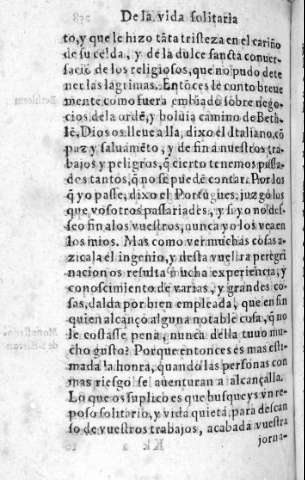 De la vida solitaria
to, y que le hizo tãta tristeza en el cariño
de su celda, y de la dulce sancta conuer-
saciõ de los religiosos, que no pudo dete
ner las lagrimas. Entõces le conto breue
mente como fuera embiado sobre nego-
cios dela ordẽ, y boluia camino de Beth-
lẽ, Dios os lleue alla, dixo el Italiano, cõ
paz y saluamẽto, y de fin a nuestros tra-
bajos y peligros, q̃ cierto tenemos passa-
dos tantos, q̃ no se puede contar. Por los
q̃ yo passe, dixo el Portugues, juzgo los
que vosotros passariades, y si yo no des-
seo fin a los vuestros, nunca yo los vea en
los mios. Mas como ver muchas cosas a-
zicala el ingenio, y desta vuestra peregri
nacion os resulta mucha experiencia, y
conoscimiento de varias, y grandes co-
sas, dalda por bien empleada, que en fin
quien alcanço alguna notable cosa, q̃ no
le costasse pena, nunca della tuuo mu-
cho gusto? Porque entonces es mas esti-
mada la honra, quando las personas con
mas riesgo se auenturan a alcançalla.
Lo que os suplico es que busqueys vn re-
poso solitario, y vida quieta, para descan
so de vuestros trabajos, acabada vuestra
jorna-